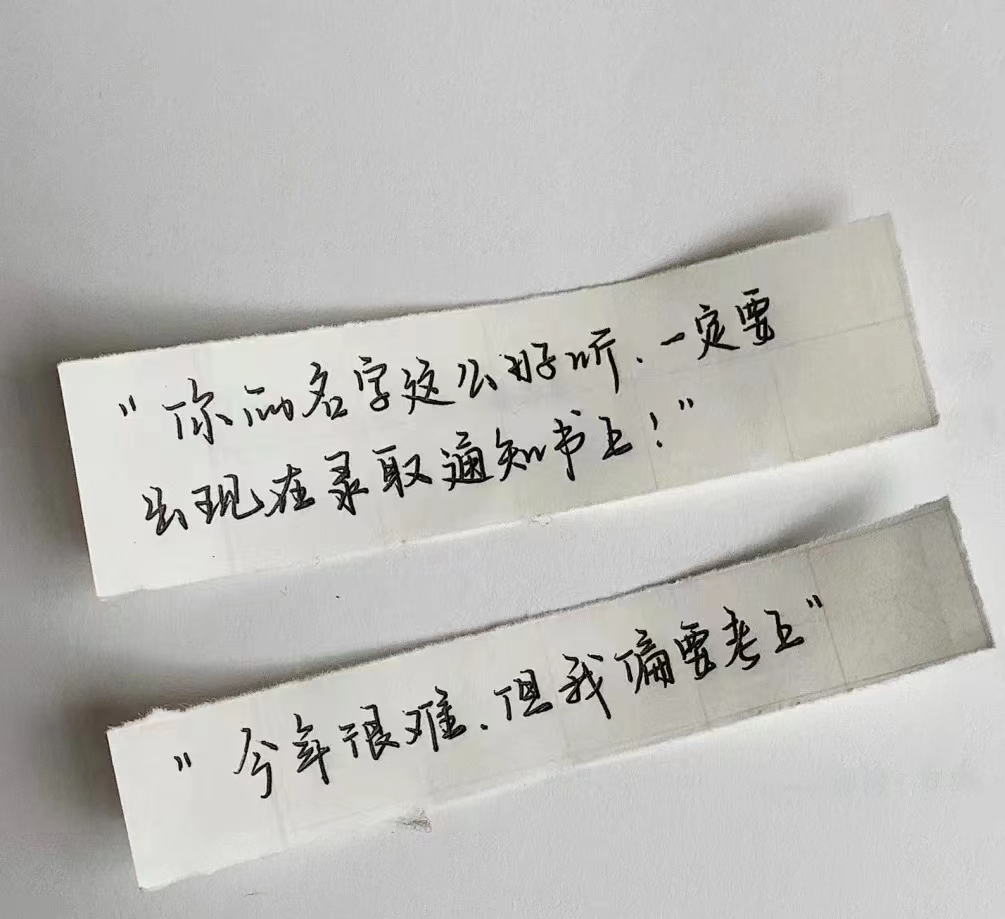 "你的名字这么好听.一定要
出现在录取通知书上!"
"今年很难.但我偏要考上"